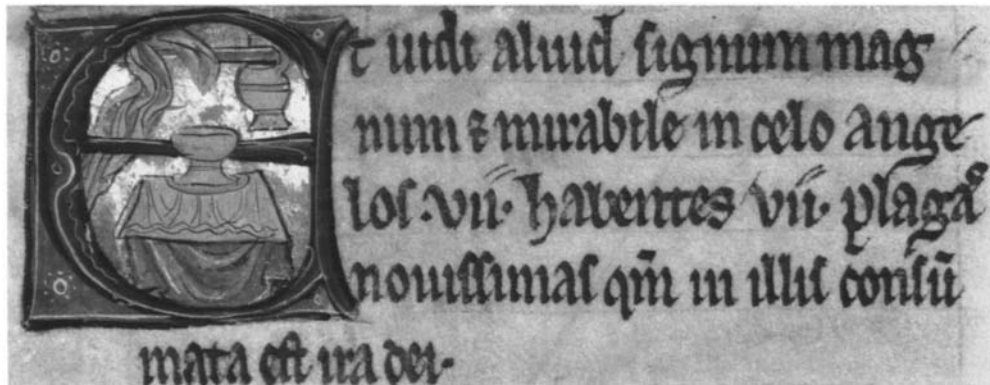 Et uidi aliud signum mag
num ⁊ mirabile in celo ange
los .vii. habentes vii. plagas
nouissimas qm̄ in illis consū
mata est ira dei.